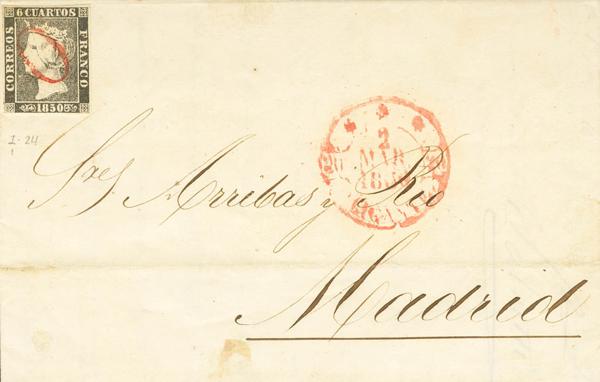 6 CUARTOS
CORREOS
FRANCO
1850
1-24
2
MAR
Sres Arribas y Rio
Madrid